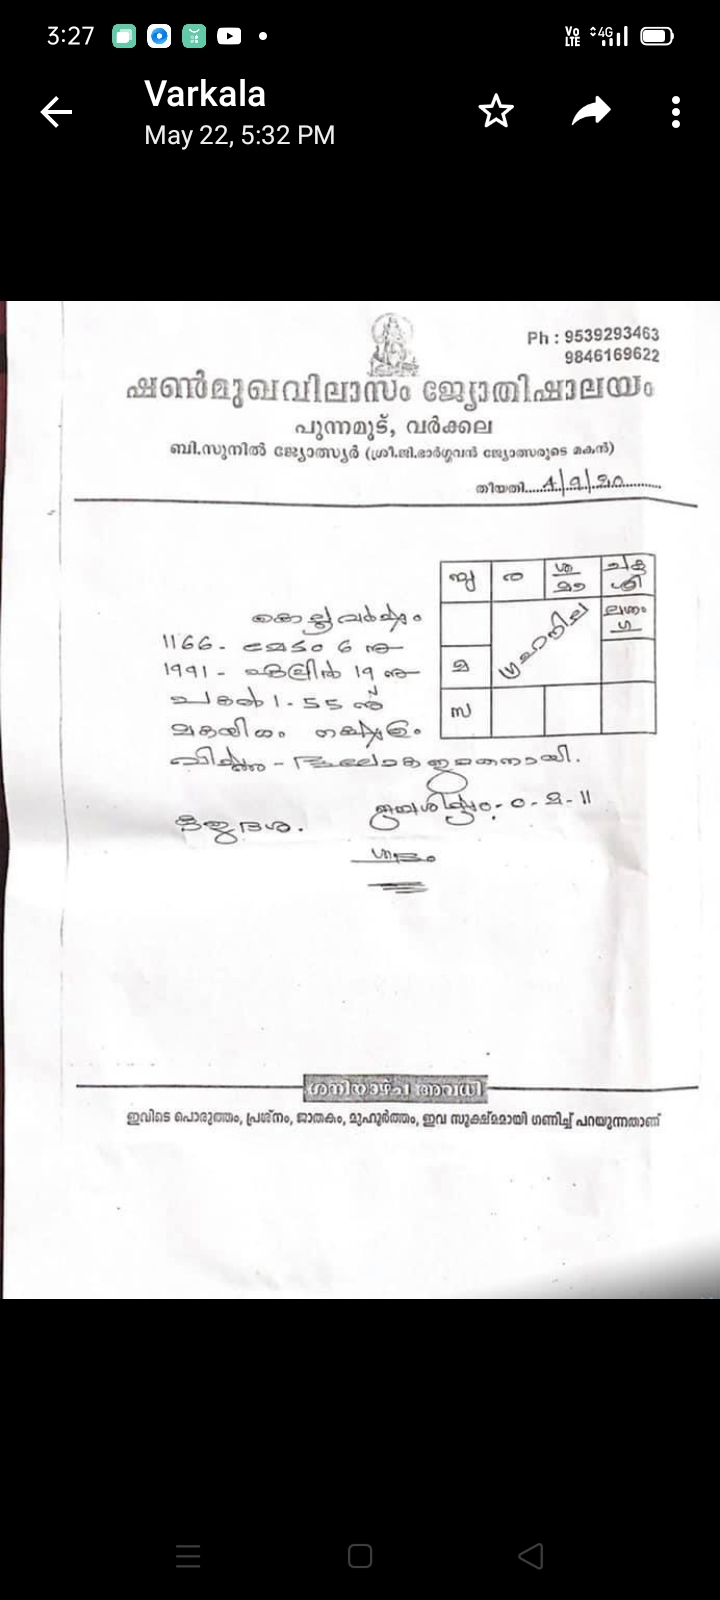 3:27
Vo LTE 4G
Varkala
May 22, 5:32 PM
Ph : 9539293463
9846169622
ഷൺമുഖവിലാസം ജ്യോതിഷാലയം
പുന്നമൂട്, വർക്കല
ബി.സുനിൽ ജ്യോത്സ്യർ (ശ്രീ.ജി.ഭാർഗ്ഗവൻ ജ്യോത്സരുടെ മകൻ)
തീയതി.....4/9/20..........
ര
ശ
ഗ്രഹനില
ഗ
മ
സ
കൊല്ലവർഷം
1166- മേടം 6 നു
1991- ഏപ്രിൽ 19 നു
പകൽ 1-55 ന്
മകയിരം
ശുഭം
ശനിയാഴ്ച അവധി
ഇവിടെ പൊരുത്തം, പ്രശ്നം, ജാതകം, മുഹൂർത്തം, ഇവ സൂക്ഷ്മമായി ഗണിച്ച് പറയുന്നതാണ്